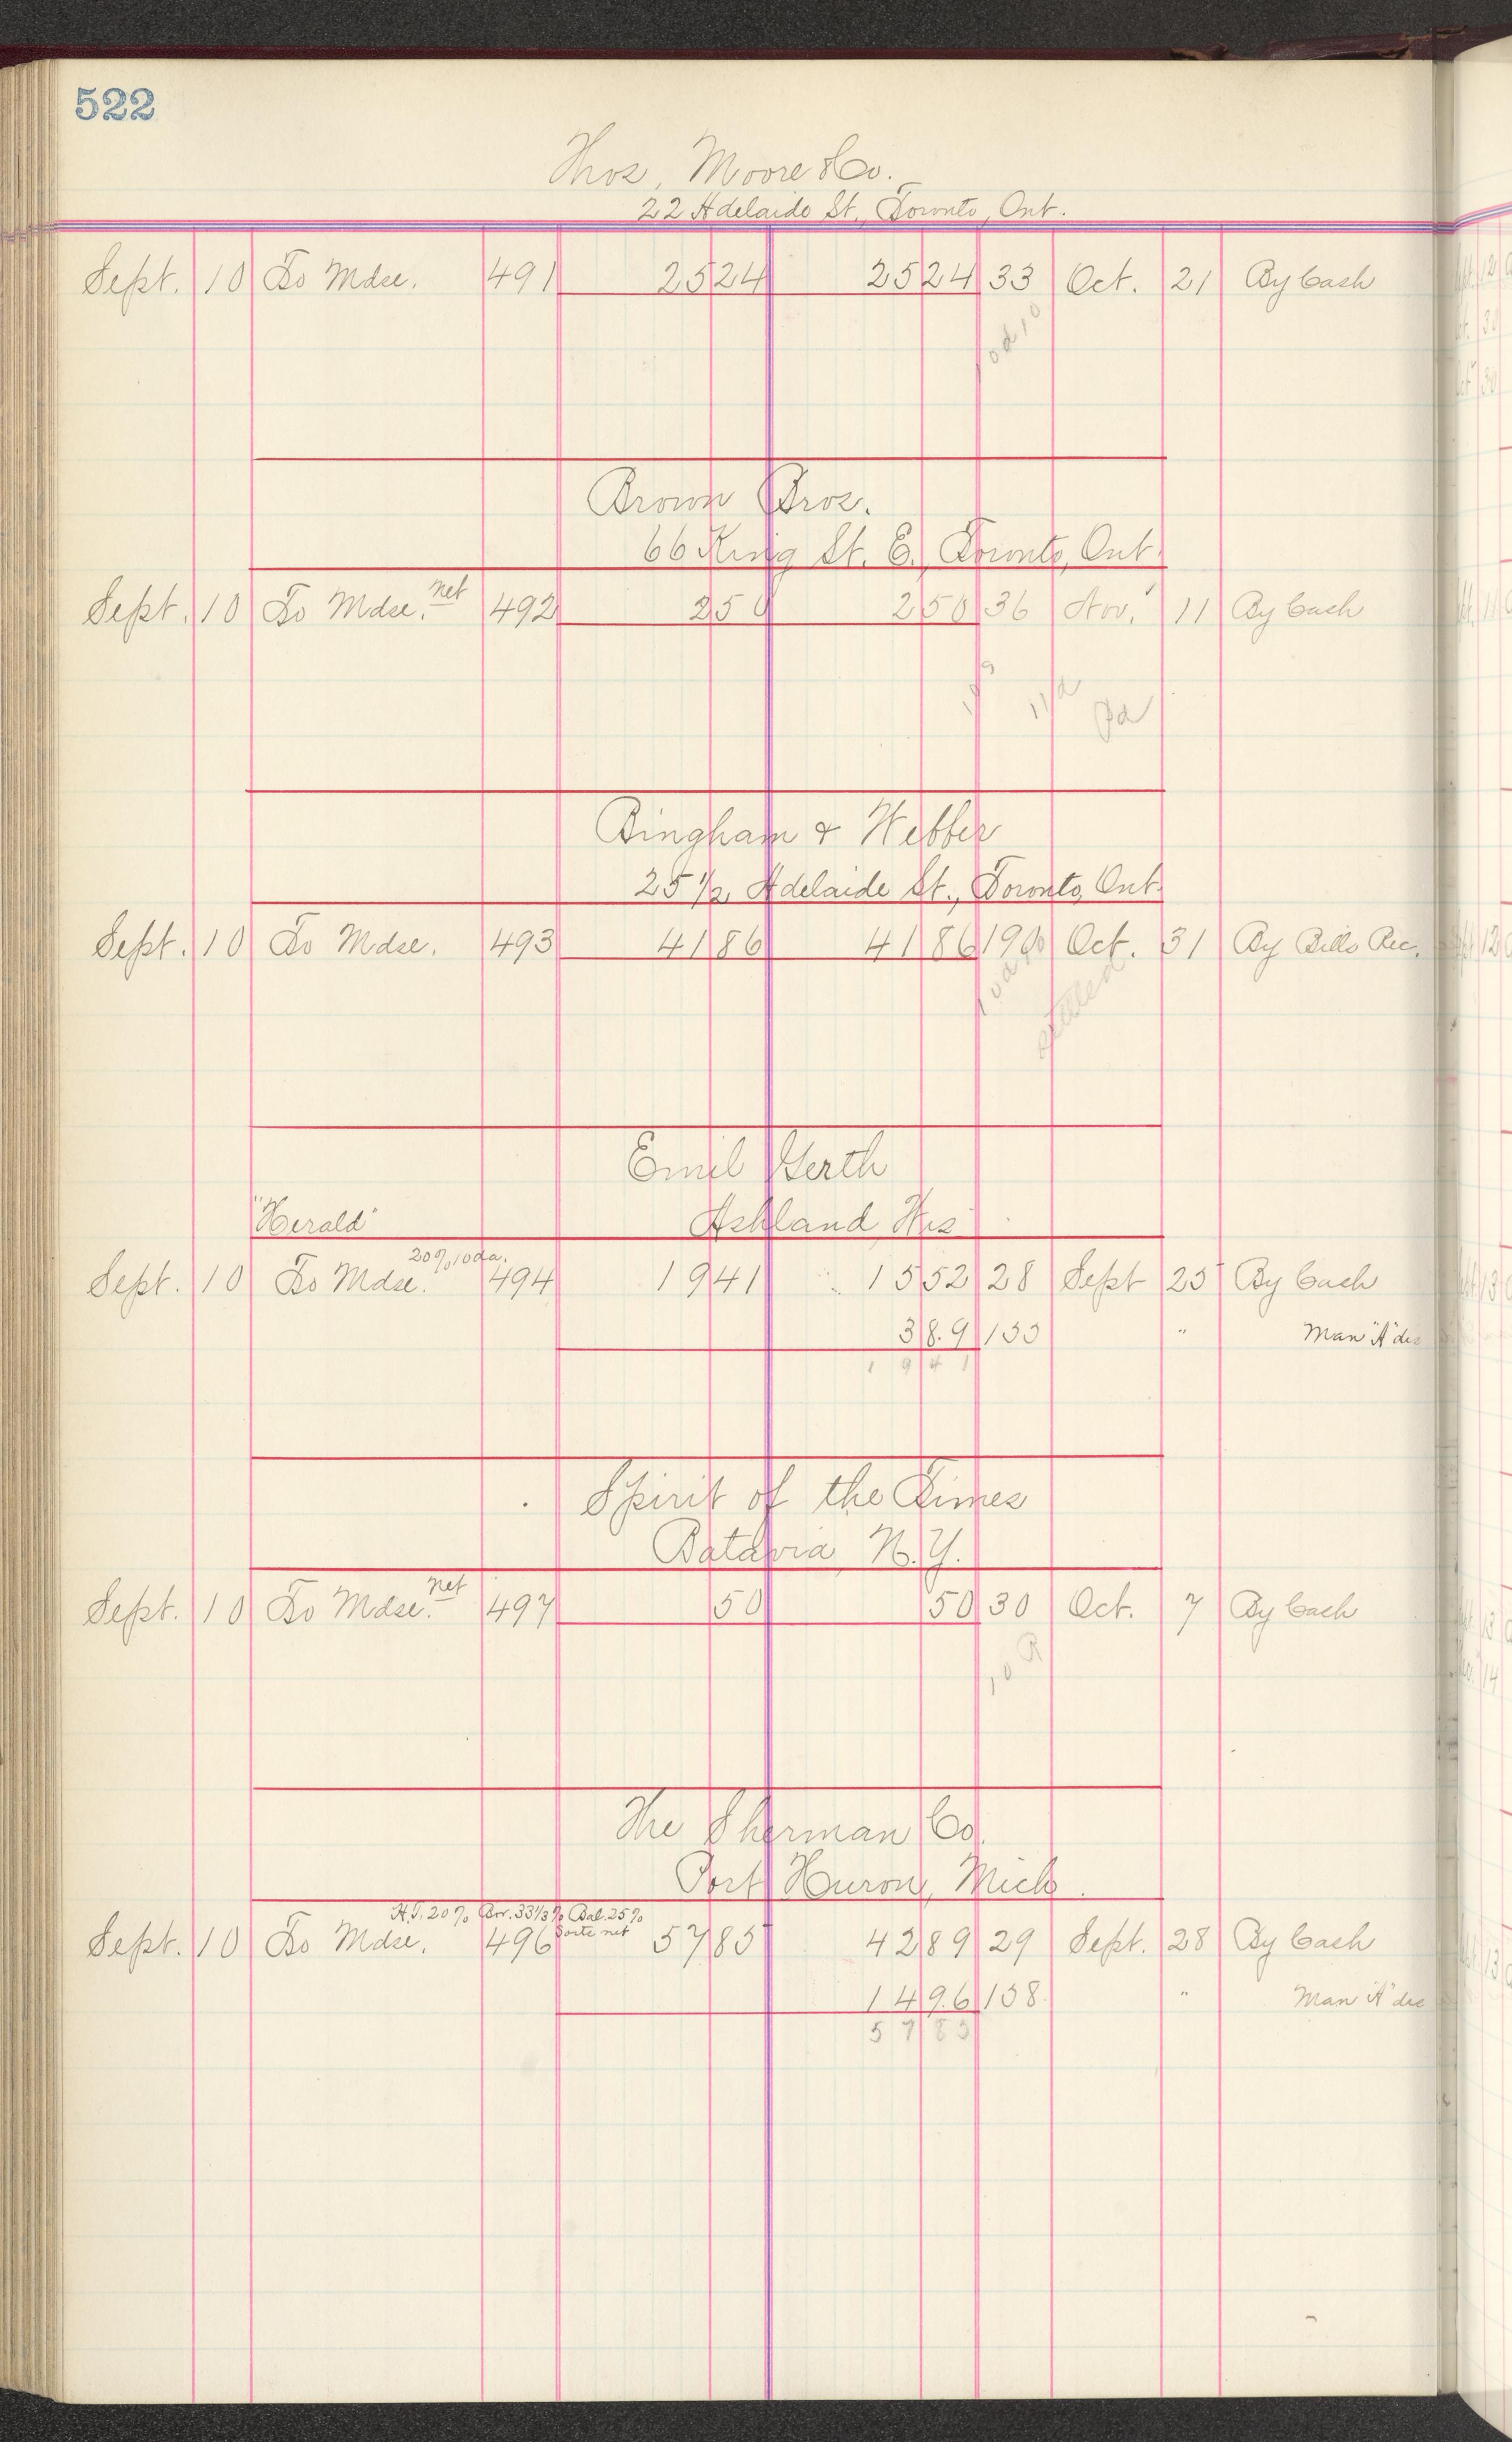 522
Thos. Moore & Co.
22 Adelaide St., Toronto, Ont.
Sept. 10 To Mdse. 491 2524 2524 33 Oct. 21 By Cash
Brown Bros.
66 King St. E., Toronto, Ont.
net
Sept. 10 To Mdse. 492 250 250 36 Nov. 11 By Cash
Pd
Bingham & Webber
25 1/2 Adelaide St., Toronto, Ont.
Sept. 10 To Mdse. 493 4186 4186 190 Oct. 31 By Bills Rec.
settled
Emil
"Herald" Ashland Wis
20% 10 da.
Sept. 10 To Mdse. 494 1941 1552 28 Sept 25 By Cash
38.9 133 " Man "A" dis
1941
Spirit of the Times
Batavia N.Y.
net
Sept. 10 To Mdse. 497 50 50 30 Oct. 7 By Cash
The Sherman Co.
Port Huron, Mich.
20% 33 1/3% Bal. 25%
Sorts net
Sept. 10 To Mdse. 496 5785 4289 29 Sept. 28 By Cash
149.6 138 " Man "A" dis
5785